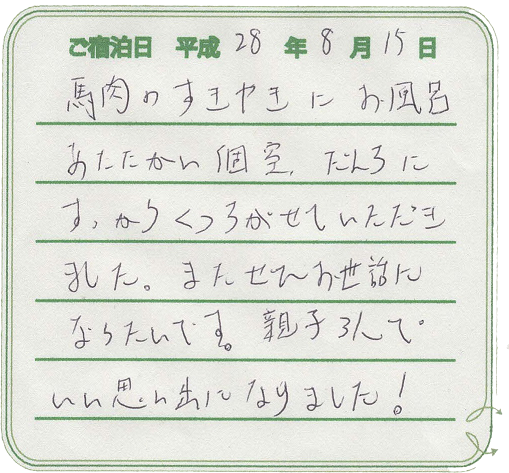 ご宿泊日 平成 28 年 8 月 15 日
馬肉のすきやきに お風呂
あたたかい個室、だんろに
すっかりくつろがせていただき
ました。またぜひお世話に
なりたいです。親子3人で
いい思い出になりました!